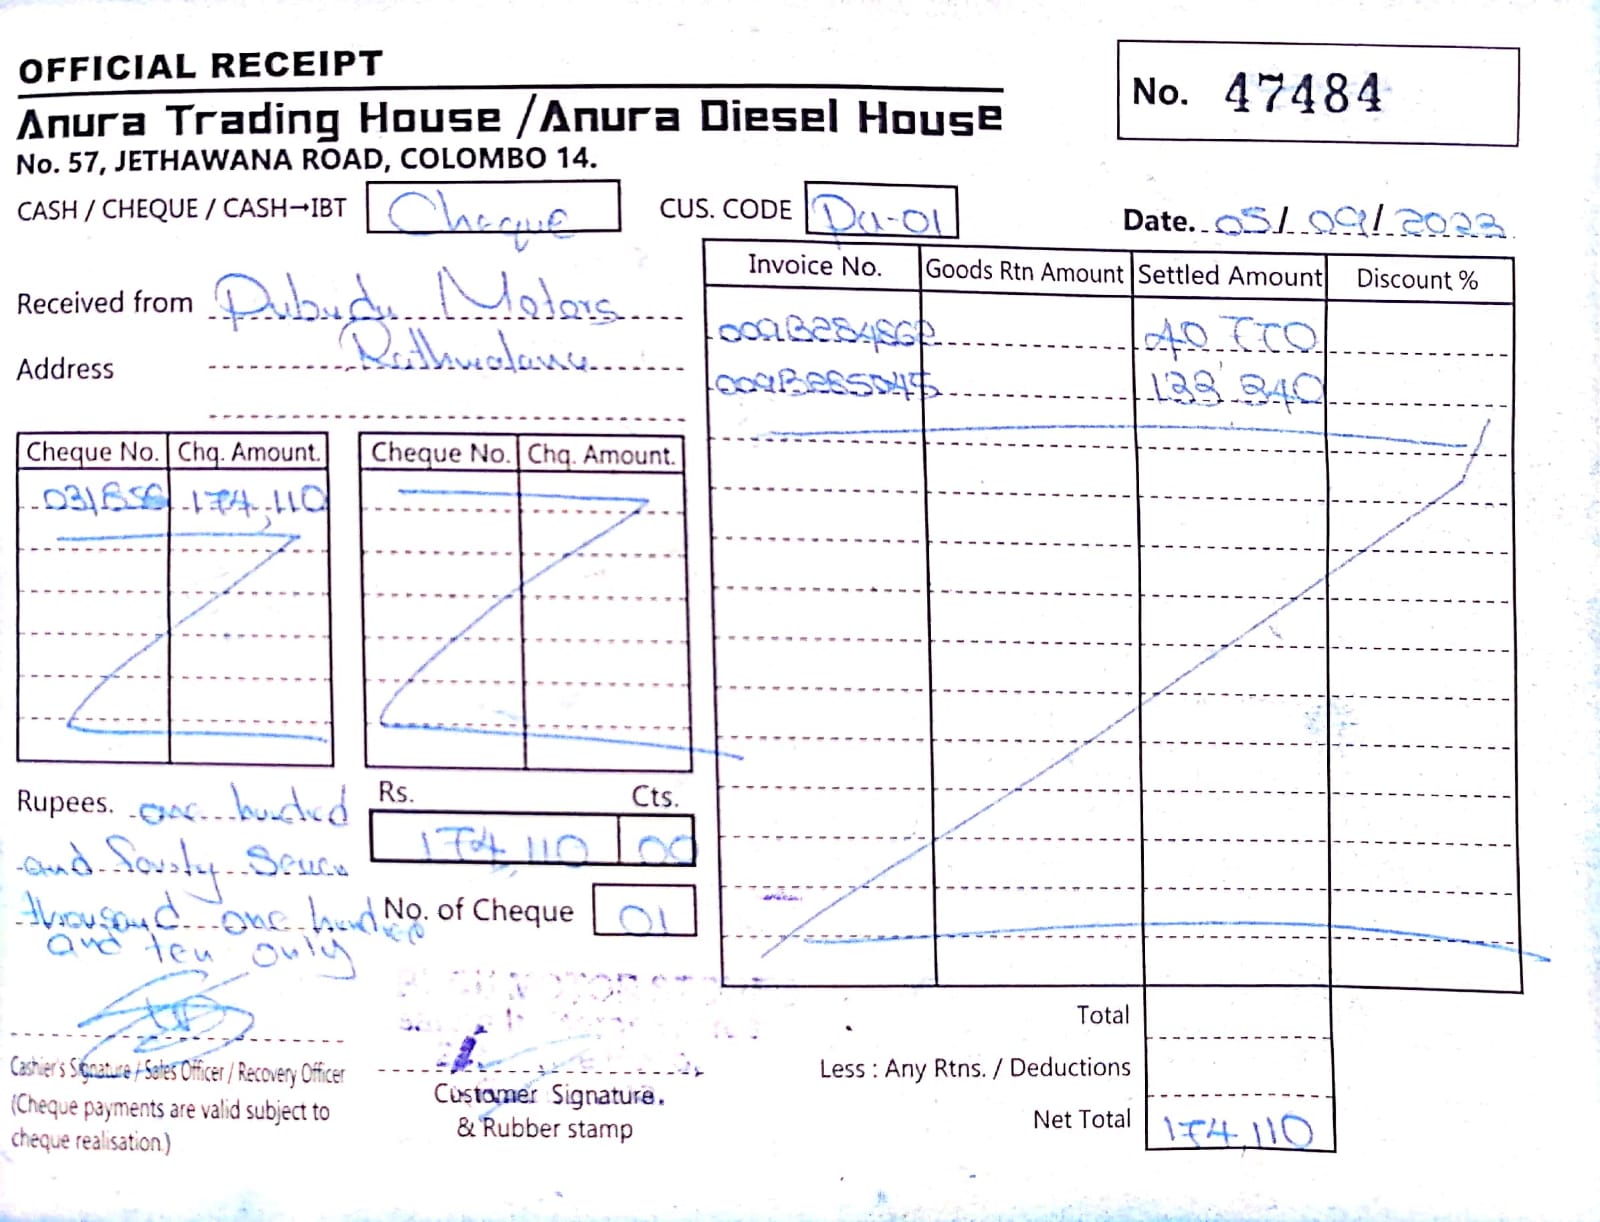 OFFICIAL RECEIPT
No. 47484
Anura Trading House / Anura Diesel House
No. 57, JETHAWANA ROAD, COLOMBO 14.
CASH / CHEQUE / CASH→IBT Cheque
CUS. CODE Pu-01
Date. 05/09/2023
Received from Pubudu Motors
Address
Invoice No. Goods Rtn Amount Settled Amount Discount %
40 770
133 340
Cheque No. Chq. Amount. Cheque No. Chq. Amount.
174,110
Rupees. one hundred
and Seven
thousand one hundred
and ten only
Rs. Cts.
174,110 00
No. of Cheque 01
Total
Less : Any Rtns. / Deductions
Net Total 174,110
Cashier's Signature / Sales Officer / Recovery Officer
(Cheque payments are valid subject to
cheque realisation.)
Customer Signature.
& Rubber stamp